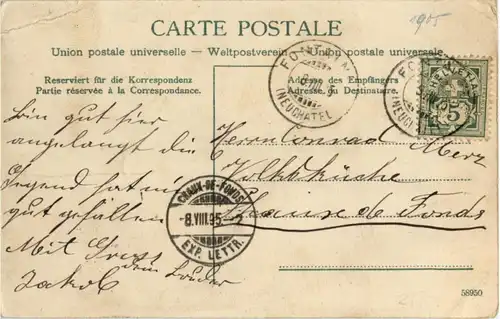 CARTE POSTALE
1905
Union postale universelle – Weltpostverein – Union postale universelle
Reserviert für die Korrespondenz
Partie réservée à la Correspondance.
Adresse des Empfängers
Adresse du Destinataire.
(NEUCHATEL)
(NEUCHATEL)
HELVETIA
5
Bin gut hier
angelangt die
Gegend hat mir
gut gefallen
Mit Gruss
dein Bruder
Jakob
Herrn Conrad Merz
Volksküche
Chaux de Fonds
CHAUX-DE-FONDS
-8.VIII.05-
EXP. LETTR.
58950